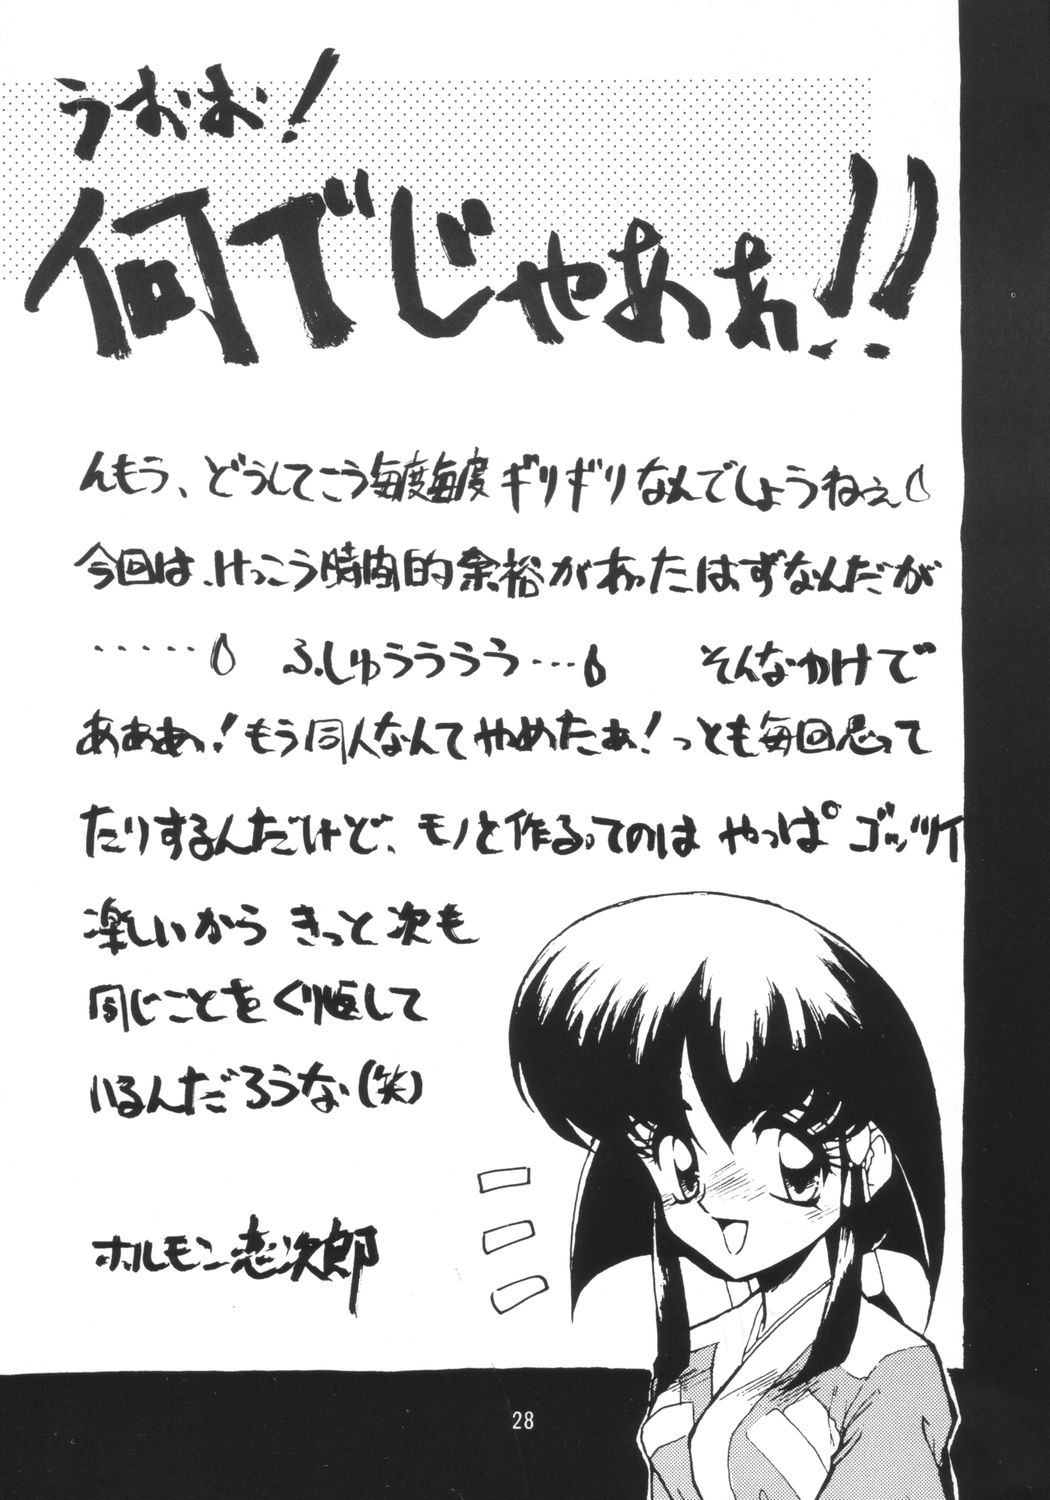 うおお!
何でじゃあぁ!!
んもう、どうしてこう毎度毎度ギリギリなんでしょうねぇ
今回は、けっこう時間的余裕があったはずなんだが
‥‥‥ ふしゅうぅぅぅぅ… そんなわけで
あぁああっ!もう同人なんてやめたぁ!っとも毎回思って
たりするんだけど、モノを作るってのは やっぱ ゴッツイ
楽しいから きっと次も
同じことをくり返して
いるんだろうな(笑)
ホルモン恋次郎
28